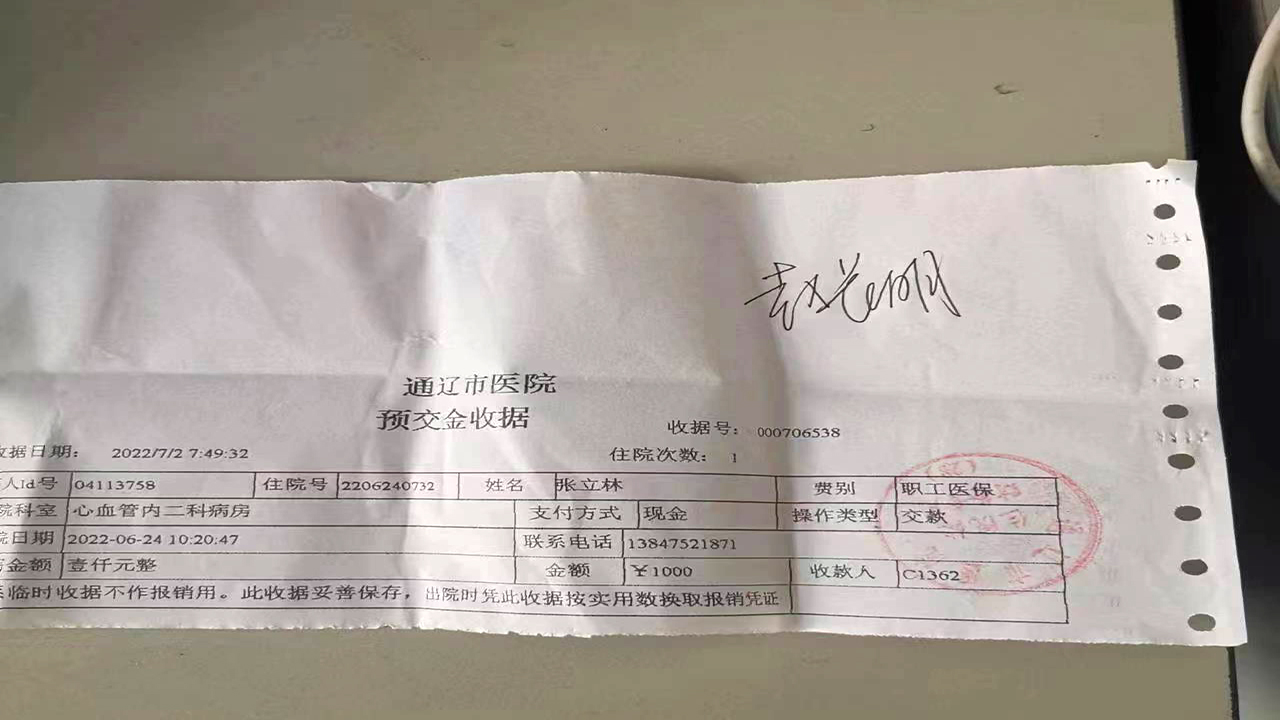 赵光明
通辽市医院
预交金收据
收据号: 000706538
收据日期: 2022/7/2 7:49:32 住院次数: 1
人Id号 04113758 住院号 2206240732 姓名 张立林 费别 职工医保
院科室 心血管内二科病房 支付方式 现金 操作类型 交款
院日期 2022-06-24 10:20:47 联系电话 13847521871
金额 壹仟元整 金额 ¥1000 收款人 C1362
临时收据不作报销用。此收据妥善保存，出院时凭此收据按实用数换取报销凭证